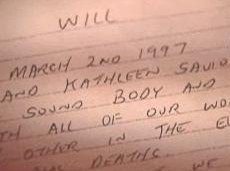 WILL
MARCH 2ND 1997
AND KATHLEEN SAVIO
SOUND BODY AND
TH ALL OF OUR WO
OTHER IN THE E
DEATHS.
WE